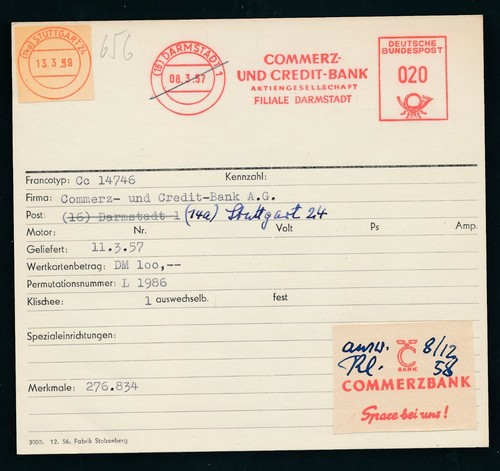 (14a) STUTTGART 24
13.3.58
656
(16) DARMSTADT 1
08.3.57
COMMERZ-
UND CREDIT-BANK
AKTIENGESELLSCHAFT
FILIALE DARMSTADT
DEUTSCHE
BUNDESPOST
020
Francotyp: Cc 14746 Kennzahl:
Firma: Commerz- und Credit-Bank A.G.
Post: (16) Darmstadt 1 (14a) Stuttgart 24
Motor: Nr. Volt Ps Amp.
Geliefert: 11.3.57
Wertkartenbetrag: DM 100,--
Permutationsnummer: L 1986
Klischee: 1 auswechselb. fest
Spezialeinrichtungen:
ausw. 8/12
Kl. 58
BANK
COMMERZBANK
Spare bei uns!
Merkmale: 276.834
3000. 12. 56. Fabrik Stolzenberg